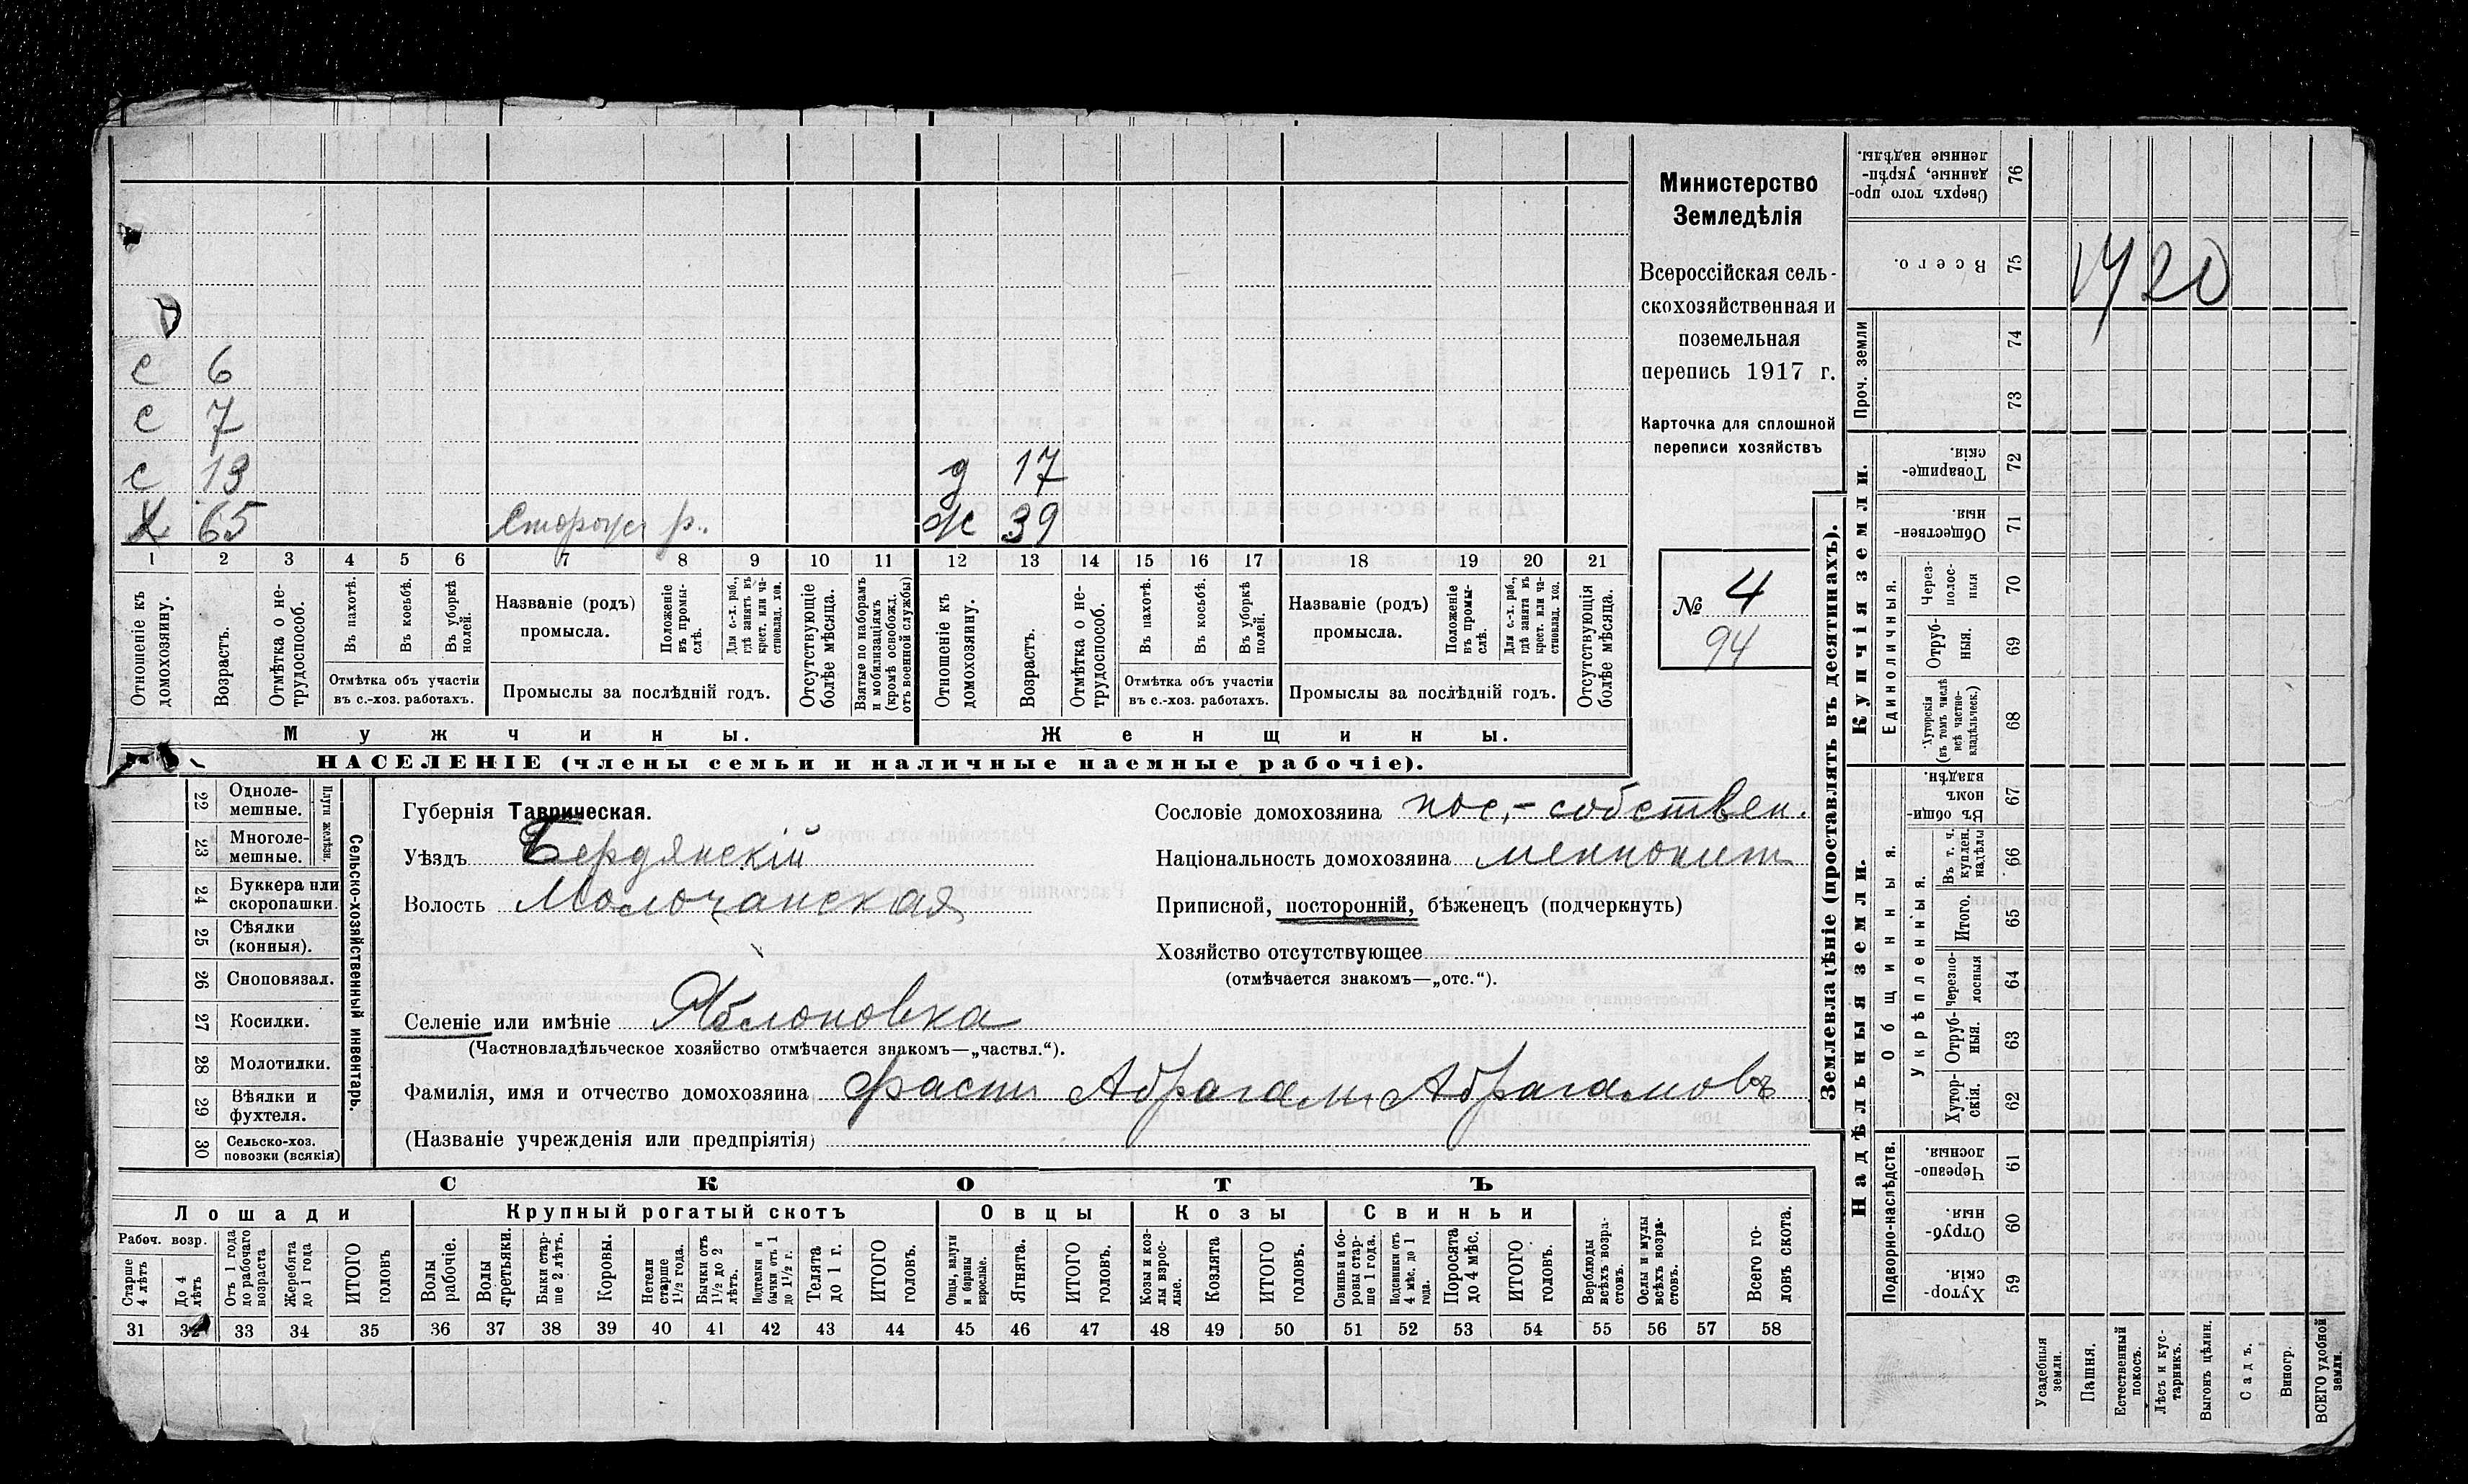 с 6
с 7
с 13 д 17
Х 65 Сторож р. ж 39
1 2 3 4 5 6 7 8 9 10 11 12 13 14 15 16 17 18 19 20 21
Отношеніе къ домохозяину.
Возрастъ.
Отмѣтка о не-трудоспособ.
Въ пахотѣ.
Въ косьбѣ.
Въ уборкѣ полей.
Отмѣтка объ участіи
въ с.-хоз. работахъ.
Названіе (родъ)
промысла.
Положеніе въ промы-слѣ.
Для с.-х. раб., гдѣ занятъ въ крест. или ча-стновлад. хоз.
Промыслы за послѣдній годъ.
Отсутствующіе болѣе мѣсяца.
Взятые по наборамъ и мобилизаціямъ (кромѣ освобожд. отъ военной службы)
Отношеніе къ домохозяину.
Возрастъ.
Отмѣтка о не-трудоспособ.
Въ пахотѣ.
Въ косьбѣ.
Въ уборкѣ полей.
Отмѣтка объ участіи
въ с.-хоз. работахъ.
Названіе (родъ)
промысла.
Положеніе въ промы-слѣ.
Для с.-х. раб., гдѣ занята въ крест. или ча-стновлад. хоз.
Промыслы за послѣдній годъ.
Отсутствующія болѣе мѣсяца.
Мужчины. Женщины.
НАСЕЛЕНІЕ (члены семьи и наличные наемные рабочіе).
Министерство
Земледѣлія
Всероссійская сель-
скохозяйственная и
поземельная
перепись 1917 г.
Карточка для сплошной
переписи хозяйствъ
№ 4
94
Сельско-хозяйственный инвентарь.
Плуги желѣзн.
22 Одноле-мешные.
23 Многоле-мешные.
24 Буккера или скоропашки.
25 Сѣялки (конныя).
26 Сноповязал.
27 Косилки.
28 Молотилки.
29 Вѣялки и фухтеля.
30 Сельско-хоз. повозки (всякія)
Губернія Таврическая.
Уѣздъ Бердянскій
Волость Молочанская
Селеніе или имѣніе Яблоновка
(Частновладѣльческое хозяйство отмѣчается знакомъ—„частвл.“).
Фамилія, имя и отчество домохозяина Фаст Абрагам Абрагамовъ
(Названіе учрежденія или предпріятія)
Сословіе домохозяина пос.-собствен.
Національность домохозяина меннонит
Приписной, посторонній, бѣженецъ (подчеркнуть)
Хозяйство отсутствующее
(отмѣчается знакомъ—„отс.“).
СКОТЪ
Лошади Крупный рогатый скотъ Овцы Козы Свиньи
Рабоч. возр.
Старше 4 лѣтъ
До 4 лѣтъ
Отъ 1 года до рабочаго возраста
Жеребята до 1 года
ИТОГО головъ
Волы рабочіе.
Волы третьяки.
Быки стар-ше 2 лѣтъ.
Коровы.
Нетели старше 1½ года.
Бычки отъ 1½ до 2 лѣтъ.
Подтелки и бычки отъ 1 до 1½ г.
Телята до 1 г.
ИТОГО головъ.
Овцы, валухи и бараны взрослые.
Ягнята.
ИТОГО головъ.
Козы и коз-лы взрос-лые.
Козлята
ИТОГО головъ.
Свиньи и бо-ровы стар-ше 1 года.
Подсвинки отъ 4 мѣс. до 1 года.
Поросята до 4 мѣс.
ИТОГО головъ.
Верблюды всѣхъ возра-стовъ.
Ослы и мулы всѣхъ возра-стовъ.
Всего го-ловъ скота.
31 32 33 34 35 36 37 38 39 40 41 42 43 44 45 46 47 48 49 50 51 52 53 54 55 56 57 58
Землевладѣніе (проставлять въ десятинахъ).
Надѣльныя земли. Купчія земли. Проч. земли
Подворно-наслѣдств.
Общинныя.
Укрѣпленныя.
Единоличныя.
76 Сверхъ того про-данные, укрѣп-ленные надѣлы.
75 Всего. 1720
74
73
72 Товарище-скія.
71 Обществен-ныя.
70 Через-полос-ныя
69 Отруб-ныя.
68 Хуторскія (въ томъ числѣ всѣ частно-владѣльческ.)
67 Въ общи-номъ владѣн.
66 Въ т. ч. куплен. надѣлы
65 Итого.
64 Черезпо-лосныя
63 Отруб-ныя.
62 Хутор-скія.
61 Черезпо-лосныя.
60 Отруб-ныя.
59 Хутор-скія.
Усадебныя земли.
Пашня.
Естественный покосъ.
Лѣсъ и кус-тарникъ.
Выгонъ цѣлин.
Садъ.
Виногр.
ВСЕГО удобной земли.